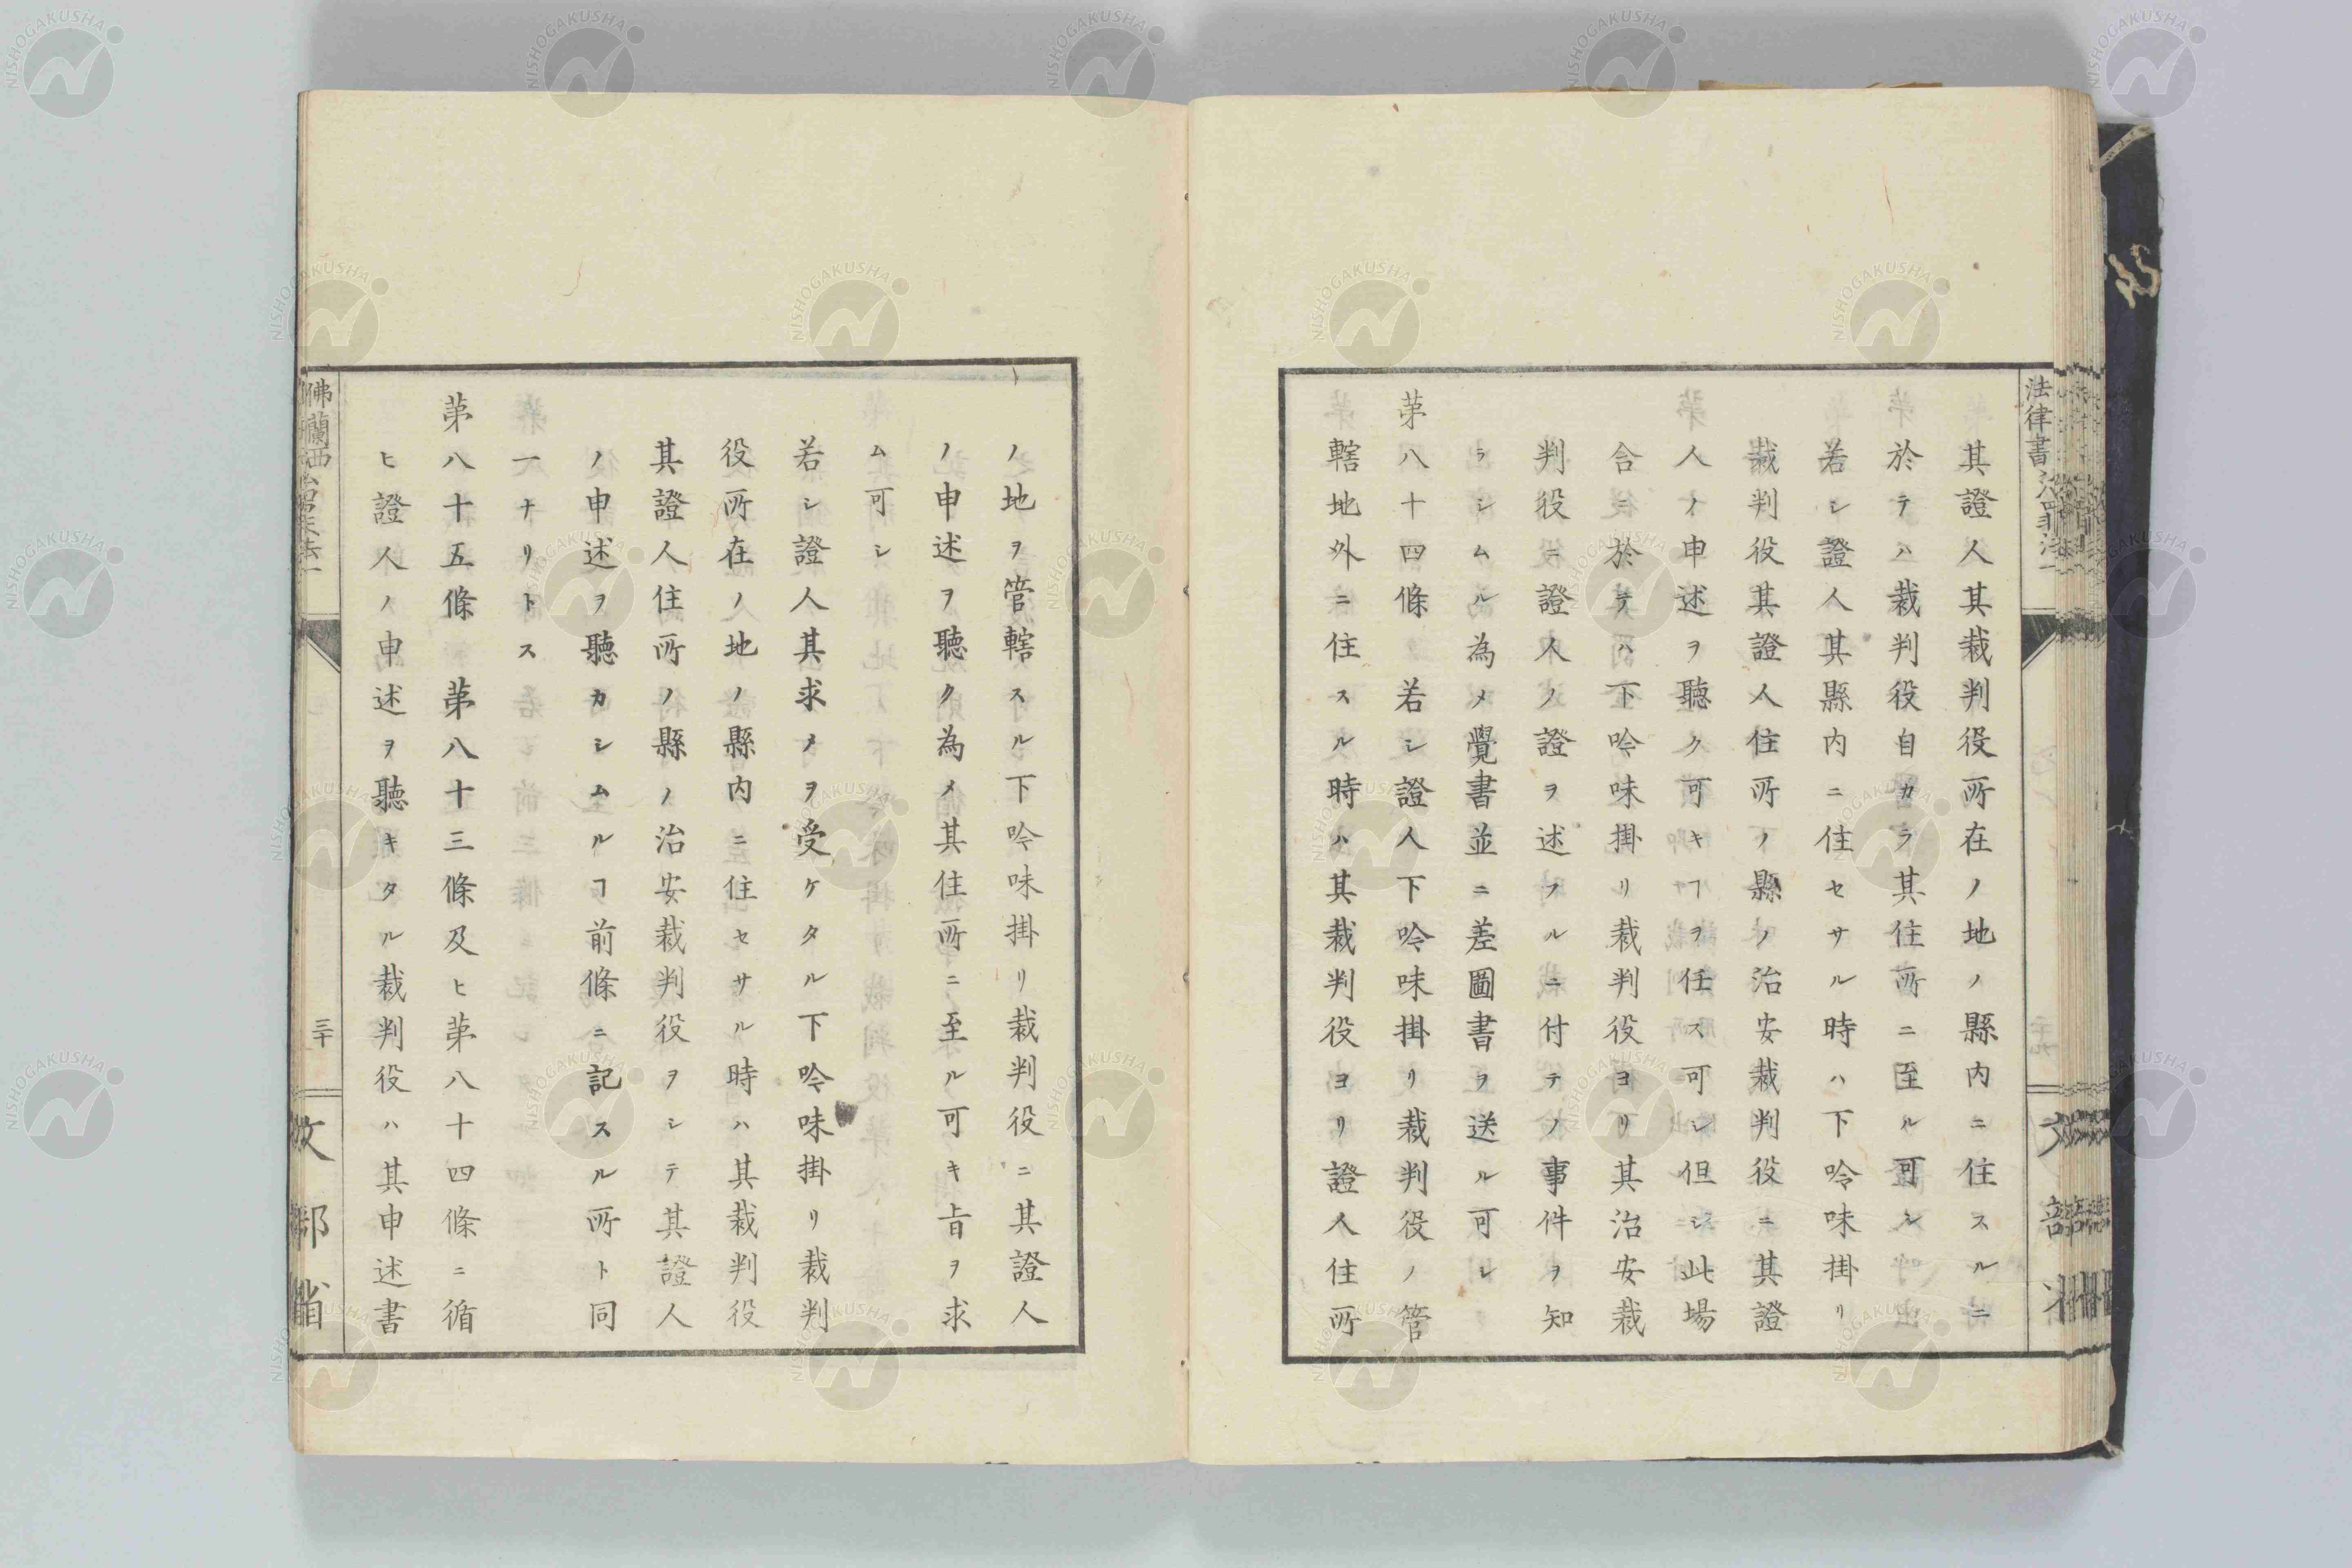 其證人其裁判役所在ノ地ノ縣内ニ住スルニ
於テハ裁判役自カラ其住所ニ至ル可シ
若シ證人其縣内ニ住セサル時ハ下吟味掛リ
裁判役其證人住所ノ縣ノ治安裁判役ニ其證
人ノ申述ヲ聽ク可キヿヲ任ス可シ但シ此場
合ニ於テハ下吟味掛リ裁判役ヨリ其治安裁
判役ニ證人ノ證ヲ述フルニ付テノ事件ヲ知
ラシムル為メ覺書並ニ差圖書ヲ送ル可シ
第八十四條 若シ證人下吟味掛リ裁判役ノ管
轄地外ニ住スル時ハ其裁判役ヨリ證人住所
ノ地ヲ管轄スル下吟味掛リ裁判役ニ其證人
ノ申述ヲ聽ク為メ其住所ニ至ル可キ旨ヲ求
ム可シ
若シ證人其求メヲ受ケタル下吟味掛リ裁判
役所在ノ地ノ縣内ニ住セサル時ハ其裁判役
其證人住所ノ縣ノ治安裁判役ヲシテ其證人
ノ申述ヲ聽カシムルヿ前條ニ記スル所ト同
一ナリトス
第八十五條 第八十三條及ヒ第八十四條ニ循
ヒ證人ノ申述ヲ聽キタル裁判役ハ其申述書
法律書
佛蘭西
三十
文部省
NISHOGAKUSHA